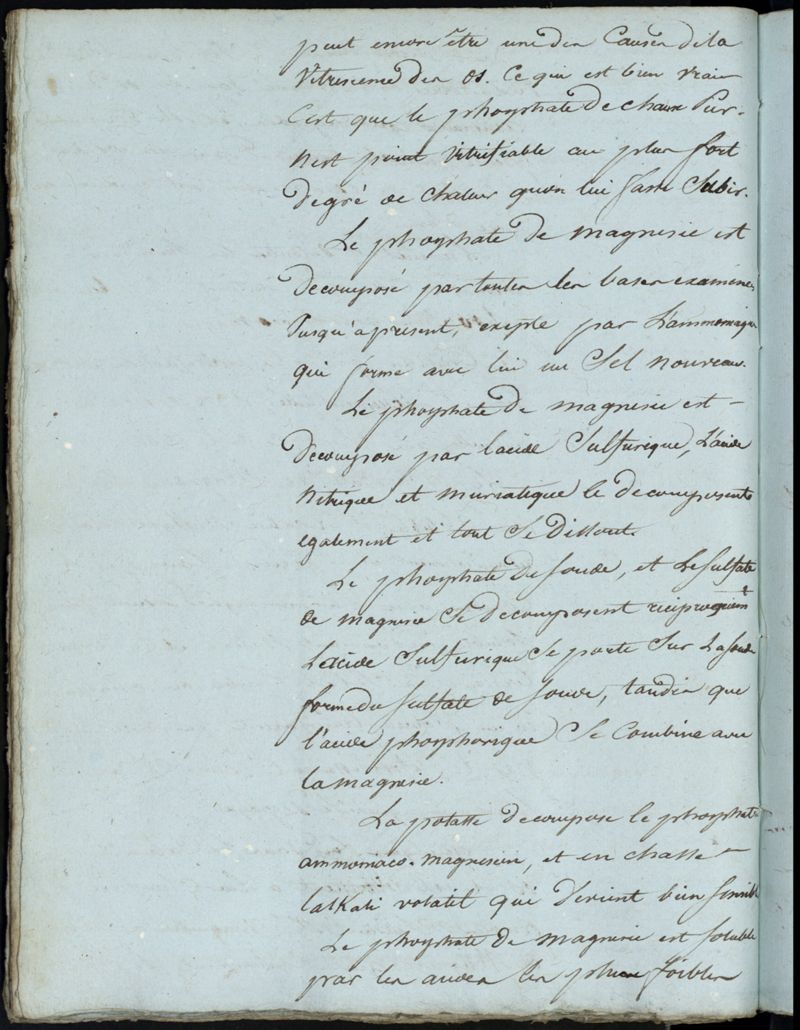 peut encore être une des Causes de la
Vitrescence des os. Ce qui est bien vrai
C'est que le phosphate de chaux Pur-
n'est point vitrifiable au plus fort
degré de chaleur qu'on lui fasse Subir.
Le phosphate de magnesie est
decomposé par toutes les bases examinées
Jusqu'a present, exepté par L'ammoniaque
qui forme avec lui un Sel nouveau.
Le phosphate de magnesie est –
decomposé par l'acide Sulfurique, L'acide
nitrique et muriatique le decomposent
egalement et tout se dissout.
Le phosphate de soude, et Le sulfate
de magnesie se decomposent reciproquem.t
L'acide Sulfurique se porte sur La soude
forme du sulfate de soude, tandis que
l'acide phosphorique se combine avec
la magnesie.
La potasse decompose le phosphate
ammoniaco-magnesien, et en chasse
l'alkali volatil qui devient bien sensible
Le phosphate de magnesie est soluble
par les acides les plus foibles